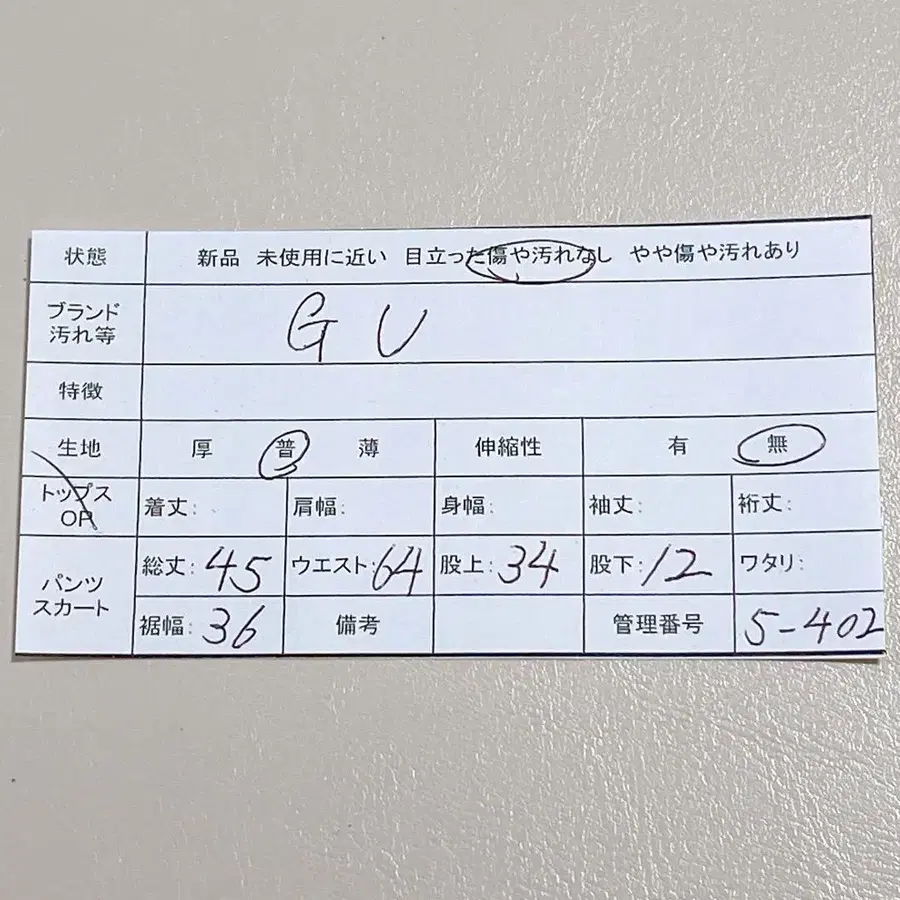 状態 新品 未使用に近い 目立った傷や汚れなし やや傷や汚れあり
ブランド
汚れ等 GU
特徴
生地 厚 普 薄 伸縮性 有 無
トップス
OP 着丈: 肩幅: 身幅: 袖丈: 裄丈:
パンツ
スカート 総丈: 45 ウエスト: 64 股上: 34 股下: 12 ワタリ:
裾幅: 36 備考 管理番号 5-402